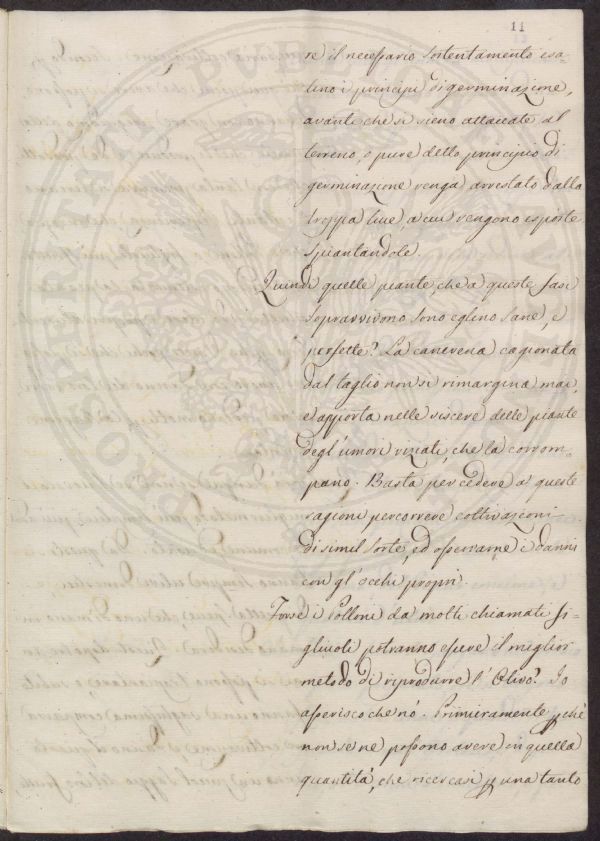 11
re il necessario sostentamento esa-
lino i principj di germinazione,
avanti che si sieno attaccate al
terreno, o pure dello principio di
germinazione venga arrestato dalla
troppa luce, a cui vengono esposte
spiantandole.
Quindi quelle piante, che a queste fasi
sopravvivono sono eglino sane, e
perfette? La cancrena cagionata
dal taglio non si rimargina mai,
e apporta nelle viscere delle piante
degl'umori viziati, che la corrom-
pano. Basta per cedere a queste
ragioni percorrere coltivazioni
di simil sorte, ed osservarne i danni
con gl'occhi proprj.
Forse i Polloni da molti chiamati fi-
gliuoli potranno essere il miglior
metodo di riprodurre l'Olivo? Io
asserisco che nò. Primieramente p chè
non se ne possono avere in quella
quantità, che ricercasi p una tanto
PROSPERITATI PUBLICAE AU